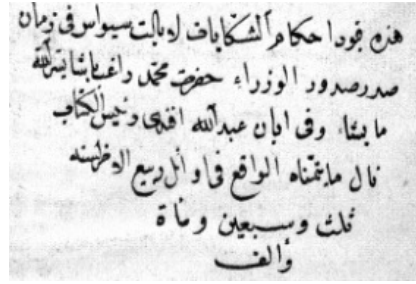 هذه قيود احكام الشكايات لايالت سيواس فى زمان
صدر صدور الوزراء حضرت محمد راغب پاشا يسر الله
ما يشاء وفى ابان عبدالله افندى رئيس الكتاب
نال ما يتمناه الواقع فى اوائل ربيع الاخر لسنه
ثلث وسبعين ومائة
والف